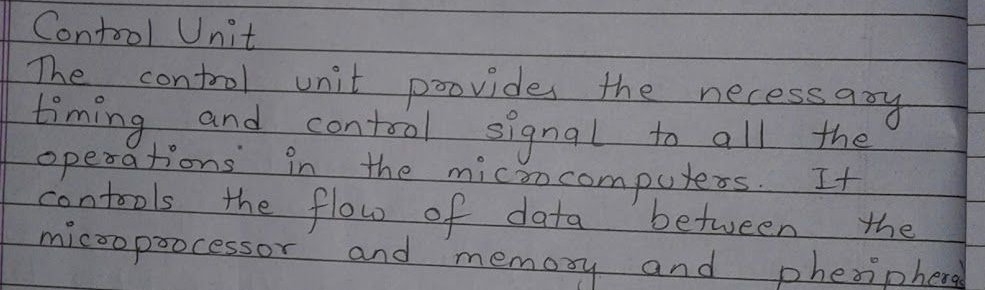 Control Unit
The control unit provides the necessary
timing and control signal to all the
operations in the microcomputers. It
controls the flow of data between the
microprocessor and memory and